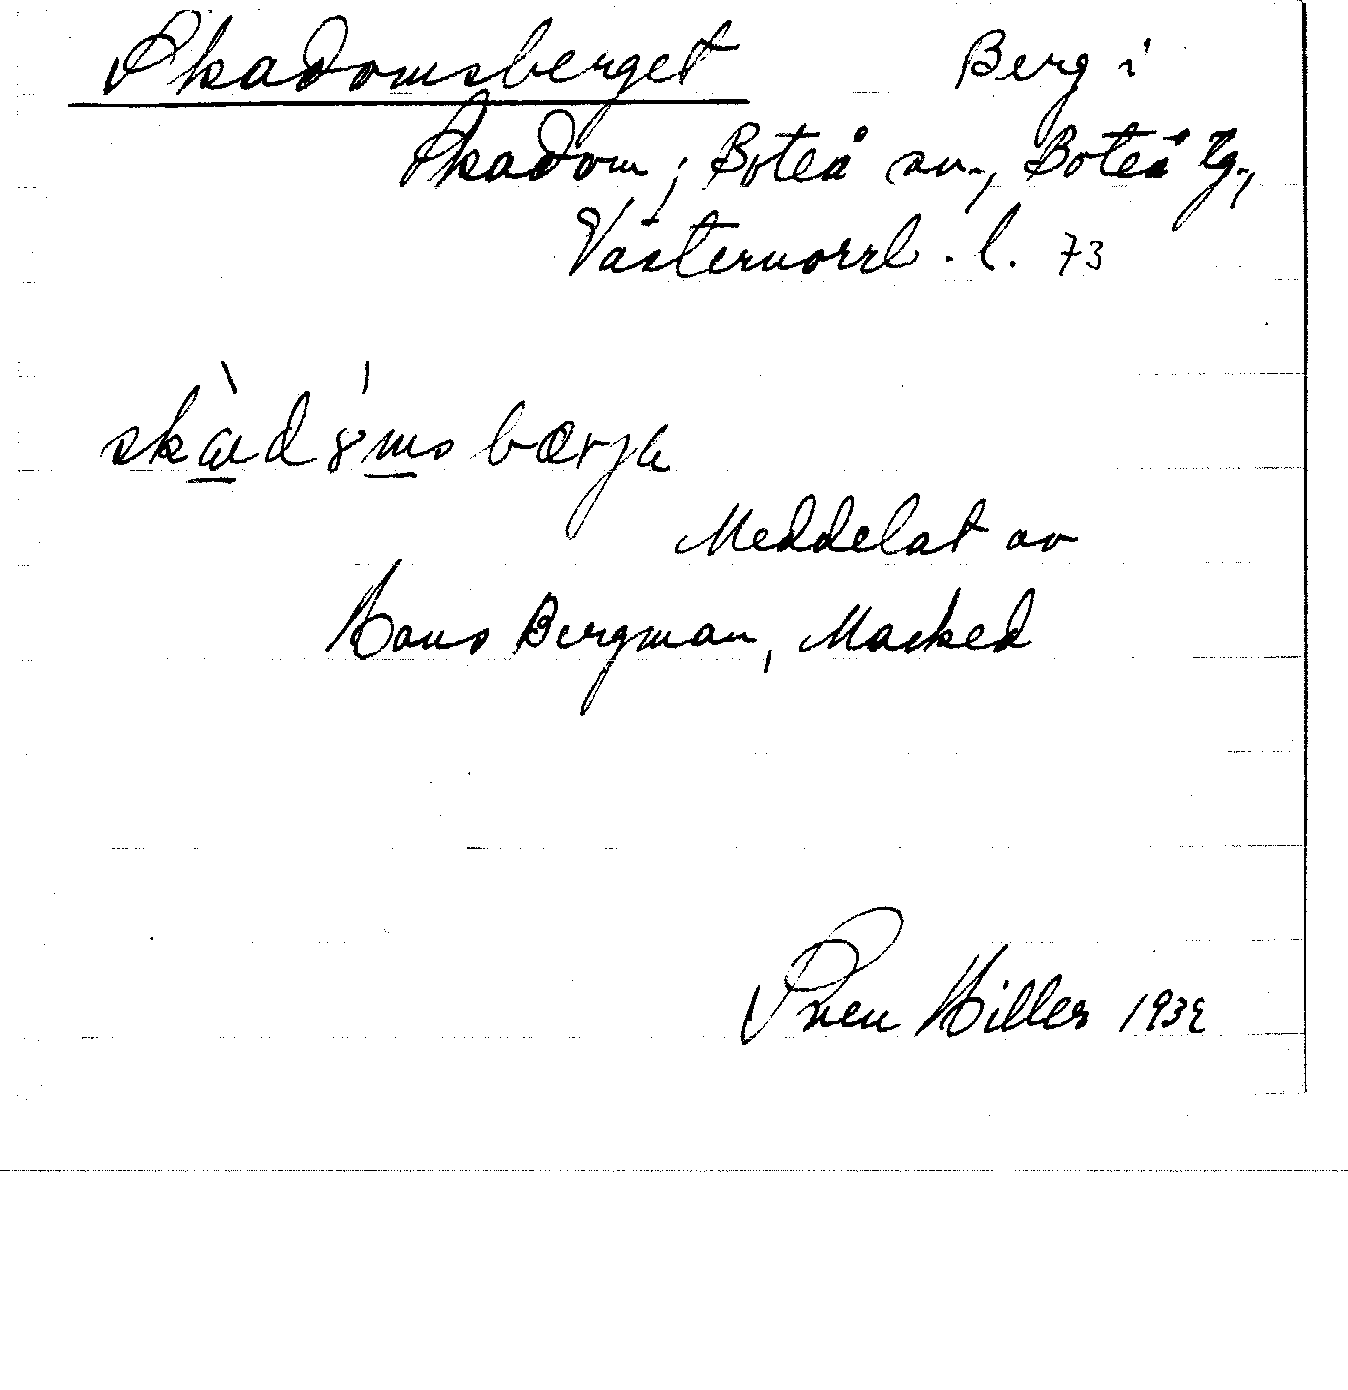 Skadomsberget Berg i
Skadom, Boteå sn., Boteå tg.,
Västernorrl. l. 73
Meddelat av
Hans Bergman, Mosked
Sven Hiller 1932